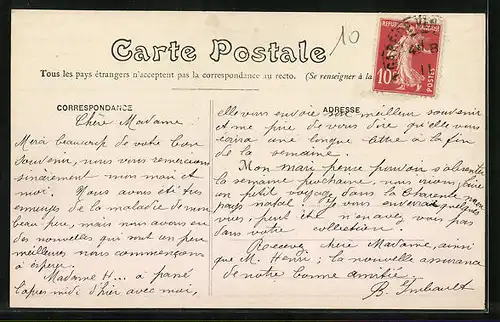 10
Carte Postale
Tous les pays étrangers n'acceptent pas la correspondance au recto. (Se renseigner à la
RÉPUBLIQUE FRANÇAISE
10
POSTES
CORRESPONDANCE
Chère Madame
Merci beaucoup de votre bon
souvenir, nous vous remercions
sincèrement mon mari et
moi. Nous avons été très
ennuyés de la maladie de mon
beau père, mais nous avons eu
des nouvelles qui sont un peu
meilleures nous commençons
à espérer
Madame H... a passé
l'après midi d'hier avec moi,
ADRESSE
elle vous envoie son meilleur souvenir
et me prie de vous dire qu'elle vous
écrira une longue lettre à la fin
de la semaine.
Mon mari pense pouvoir s'absenter
la semaine prochaine, nous irons faire
un petit voyage dans la Charente mon
pays natal. Je vous enverrai quelques
vues, peut être n'en avez vous pas
dans votre collection.
Recevez chère Madame, ainsi
que M. Henri, la nouvelle assurance
de notre bonne amitié.
B. Imbault